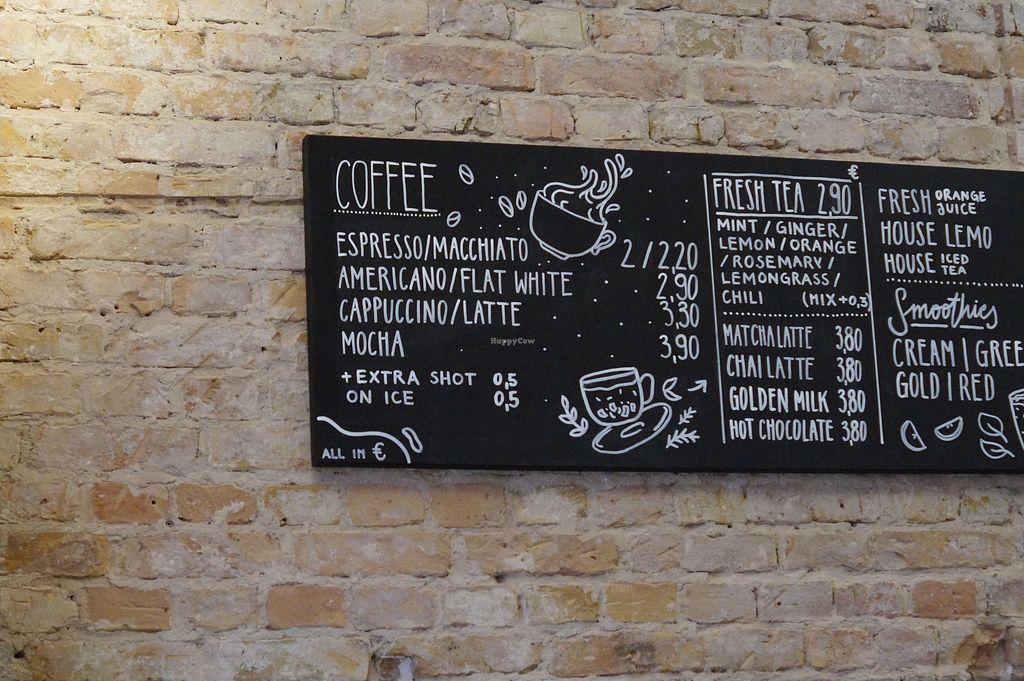 COFFEE
ESPRESSO/MACCHIATO 2/2,20
AMERICANO/FLAT WHITE 2,90
CAPPUCCINO/LATTE 3,30
MOCHA 3,90
+EXTRA SHOT 0,5
ON ICE 0,5
ALL IN €
HappyCow
€
FRESH TEA 2,90
MINT/GINGER/
LEMON/ORANGE
/ROSEMARY/
LEMONGRASS/
CHILI (MIX+0,3)
MATCHA LATTE 3,80
CHAI LATTE 3,80
GOLDEN MILK 3,80
HOT CHOCOLATE 3,80
FRESH ORANGE JUICE
HOUSE LEMO
HOUSE ICED TEA
Smoothies
CREAM | GREE
GOLD | RED